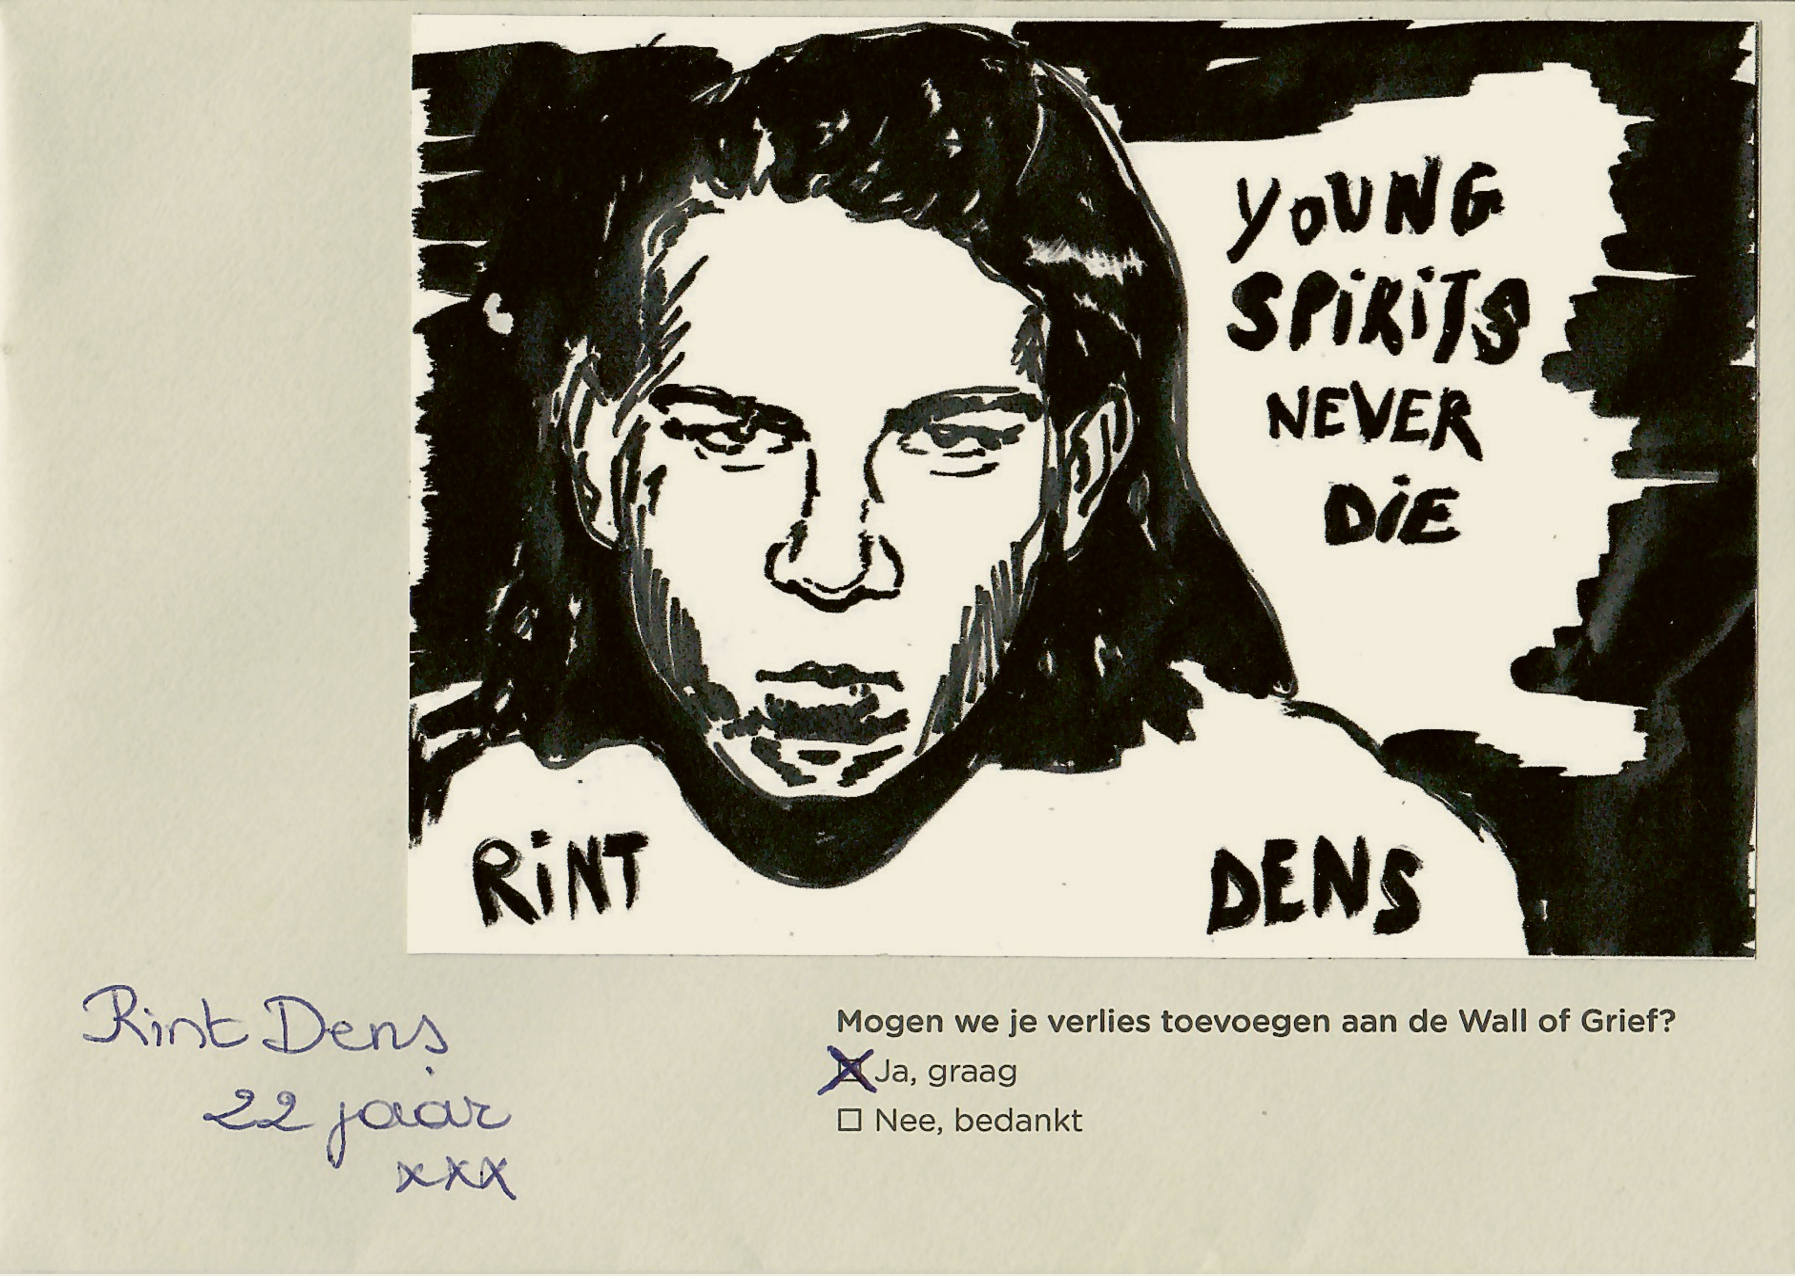 YOUNG
SPiRiTS
NEVER
DiE
RiNT DENS
Rint Dens
22 jaar
xxx
Mogen we je verlies toevoegen aan de Wall of Grief?
☒ Ja, graag
☐ Nee, bedankt